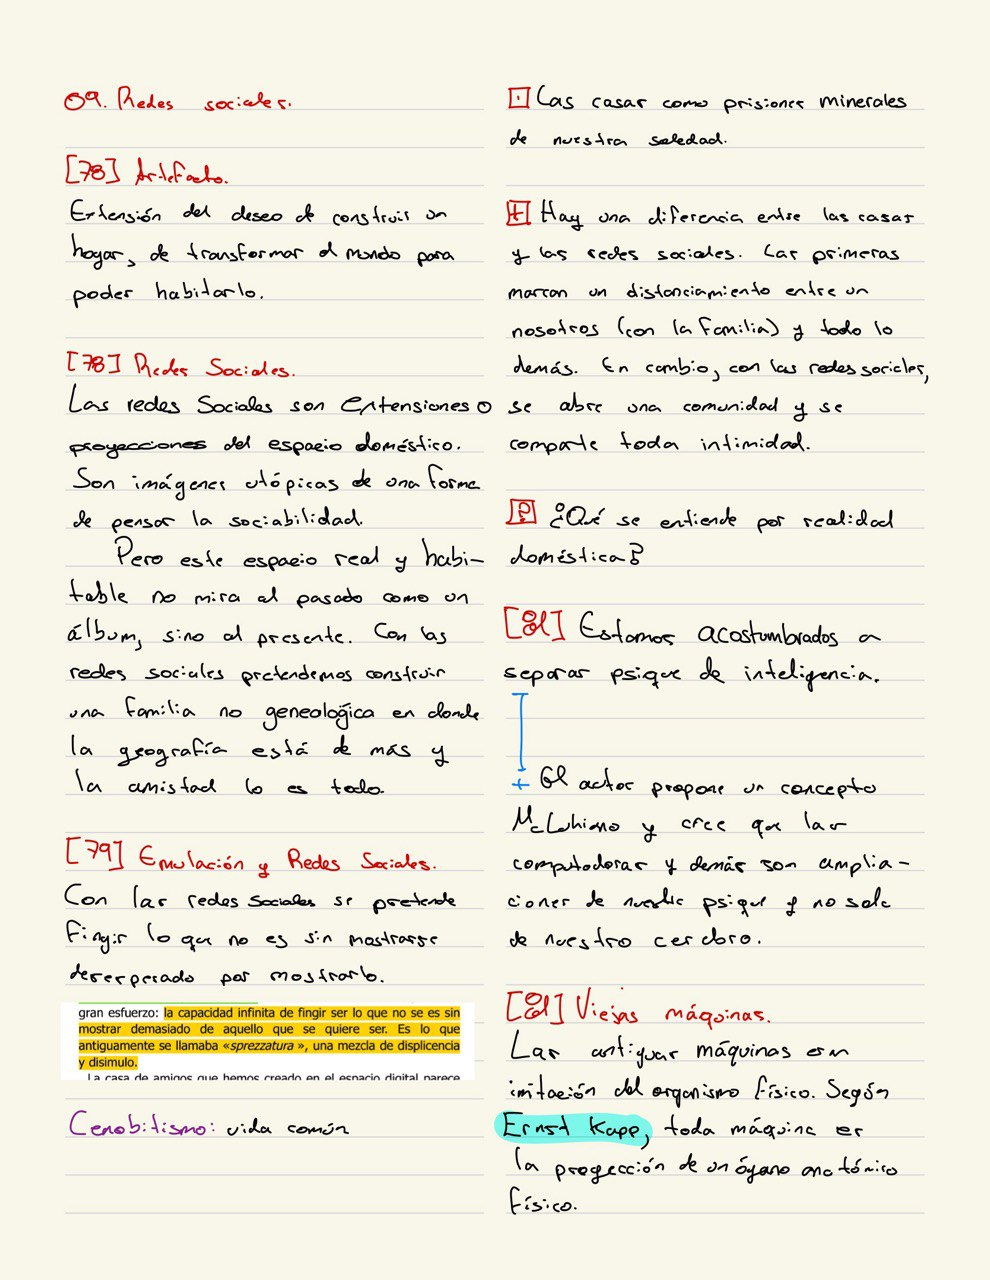 09. Redes sociales.
[78] Artefacto.
Extensión del deseo de construir un
hogar, de transformar el mundo para
poder habitarlo.
[78] Redes Sociales.
Las redes Sociales son extensiones o
proyecciones del espacio doméstico.
Son imágenes utópicas de una forma
de pensar la sociabilidad.
Pero este espacio real y habi-
table no mira al pasado como un
álbum, sino al presente. Con las
redes sociales pretendemos construir
una familia no geneológica en donde
la geografía está de más y
la amistad lo es todo.
[79] Emulación y Redes Sociales.
Con las redes sociales se pretende
fingir lo que no es sin mostrarse
desesperado por mostrarlo.
gran esfuerzo: la capacidad infinita de fingir ser lo que no se es sin
mostrar demasiado de aquello que se quiere ser. Es lo que
antiguamente se llamaba «sprezzatura », una mezcla de displicencia
y disimulo.
La casa de amigos que hemos creado en el espacio digital parece
Cenobitismo: vida común
Las casas como prisiones minerales
de nuestra soledad.
[+] Hay una diferencia entre las casas
y las redes sociales. Las primeras
marcan un distanciamiento entre un
nosotros (con la familia) y todo lo
demás. En cambio, con las redes sociales,
se abre una comunidad y se
comparte toda intimidad.
[?] ¿Qué se entiende por realidad
doméstica?
[81] Estamos acostumbrados a
separar psique de inteligencia.
+ El autor propone un concepto
McLuhiano y cree que las
computadoras y demás son amplia-
ciones de nuestra psique y no solo
de nuestro cerebro.
[81] Viejas máquinas.
Las antiguas máquinas eran
imitación del organismo físico. Según
Ernst Kapp, toda máquina es
la proyección de un órgano anatómico
físico.